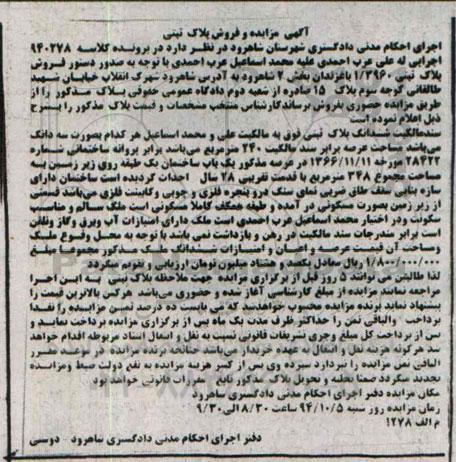 آگهی مزایده و فروش پلاک ثبتی
اجرای احکام مدنی دادگستری شهرستان شاهرود در نظر دارد در پرونده کلاسه ۹۴۰۲۷۸
اجرایی له علی عرب احمدی علیه محمد اسماعیل عرب احمدی با توجه به صدور دستور فروش
پلاک ثبتی ۱/۳۹۶۰ باغزندان بخش ۲ شاهرود به آدرس شاهرود شهرک انقلاب خیابان شهید
طالقانی کوچه سوم پلاک ۱۵ صادره از شعبه دوم دادگاه عمومی حقوقی پلاک مذکور را از
طریق مزایده حضوری بفروش برساند کارشناس منتخب مشخصات و قیمت پلاک مذکور را بشرح
ذیل اعلام نموده است
سند مالکیت ششدانگ پلاک ثبتی فوق به مالکیت علی و محمد اسماعیل هر کدام بصورت سه دانگ
می‌باشد مساحت عرصه برابر سند مالکیت ۲۴۰ مترمربع می‌باشد برابر پروانه ساختمانی شماره
۲۸۴۲۲ مورخه ۱۳۶۶/۱۱/۱۱ در عرصه مذکور یک باب ساختمان یک طبقه روی زیر زمین به
مساحت مجموع ۳۴۸ مترمربع با قدمت تقریبی ۲۸ سال احداث گردیده است ساختمان دارای
سازه بنایی سقف طاق ضربی نمای سنگ درو پنجره فلزی و چوبی و کابینت فلزی می‌باشد قسمتی
از زیر زمین بصورت مسکونی در آمده و طبقه همکف کاملا مسکونی است ملک سالم و مناسب
سکونت و در اختیار محمد اسماعیل عرب احمدی است ملک دارای امتیازات آب و برق و گاز و تلفن
است برابر مندرجات سند مالکیت در رهن و بازداشت نمی باشد با توجه به محل وقوع ملک
و مساحت آن قیمت عرصه و اعیان و امتیازات ششدانگ ملک مذکور مجموعا مبلغ
۱/۸۰۰/۰۰۰/۰۰۰ ریال معادل یکصد و هشتاد میلیون تومان ارزیابی و تقویم میگردد
لذا طالبین می توانند ۵ روز قبل از برگزاری مزایده جهت ملاحظه پلاک ثبتی به این اجرا
مراجعه نمایند مزایده از مبلغ کارشناسی آغاز شده و حضوری می‌باشد هرکس بالاترین قیمت را
پیشنهاد نماید برنده مزایده محسوب خواهد شد که می بایست ده درصد ثمن مزایده را نقدا
پرداخت والباقی ثمن را حداکثر ظرف مدت یک ماه پس از برگزاری مزایده پرداخت نماید و
پس از پرداخت کل مبلغ و جری تشریفات قانونی نسبت به نقل و انتقال اسناد مربوطه اقدام خواهد
شد هرگونه هزینه نقل و انتقال به عهده خریدار می‌باشد چنانچه برنده مزایده در موعد مقرر
الباقی ثمن مزایده را نپردازد سپرده وی پس از کسر هزینه مزایده به نفع دولت ضبط و مزایده
تجدید میگردد ضمنا تخلیه و تحویل پلاک مذکور تابع مقررات قانونی خواهد بود
مکان مزایده دفتر اجرای احکام مدنی دادگستری شاهرود
زمان مزایده روز شنبه ۹۴/۱۰/۵ ساعت ۸/۳۰ الی ۹/۳۰
م الف ۱۲۷۸
دفتر اجرای احکام مدنی دادگستری شاهرود دوستی